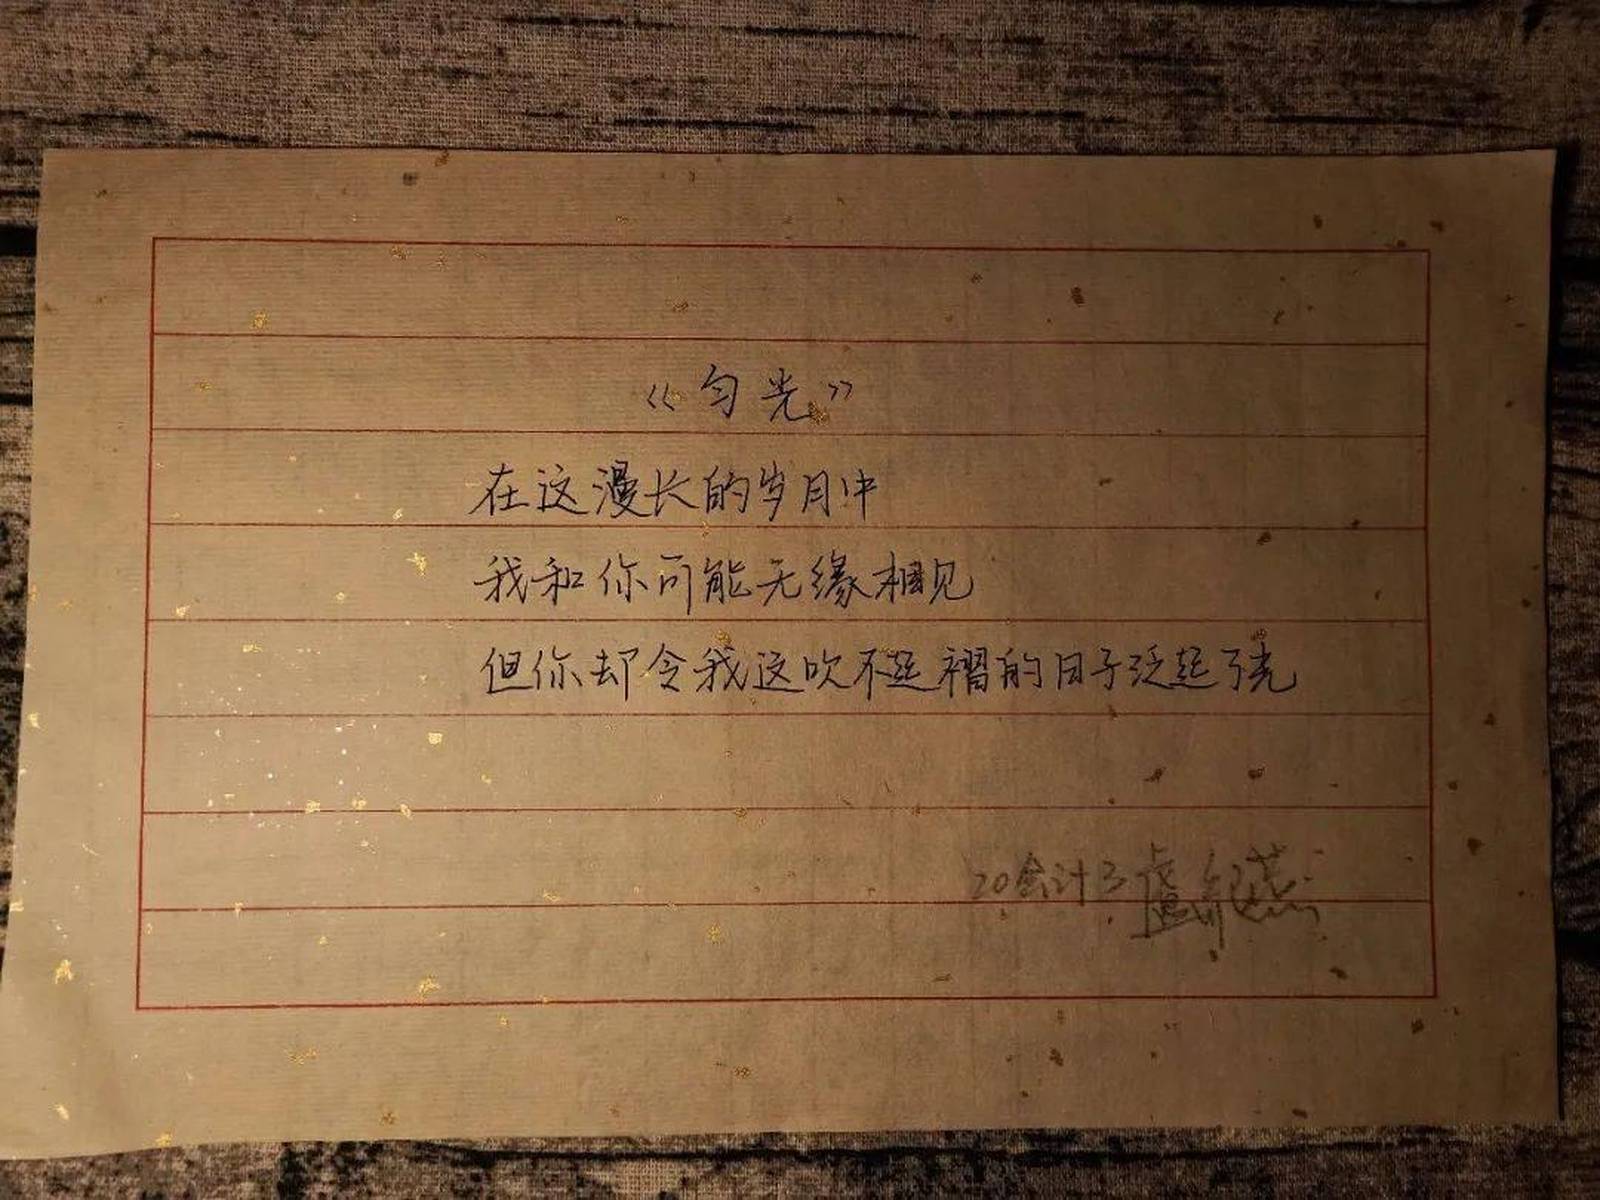 《匀光》
在这漫长的岁月中
我和你可能无缘相见
但你却令我这吹不起褶的日子泛起了光
20会计3